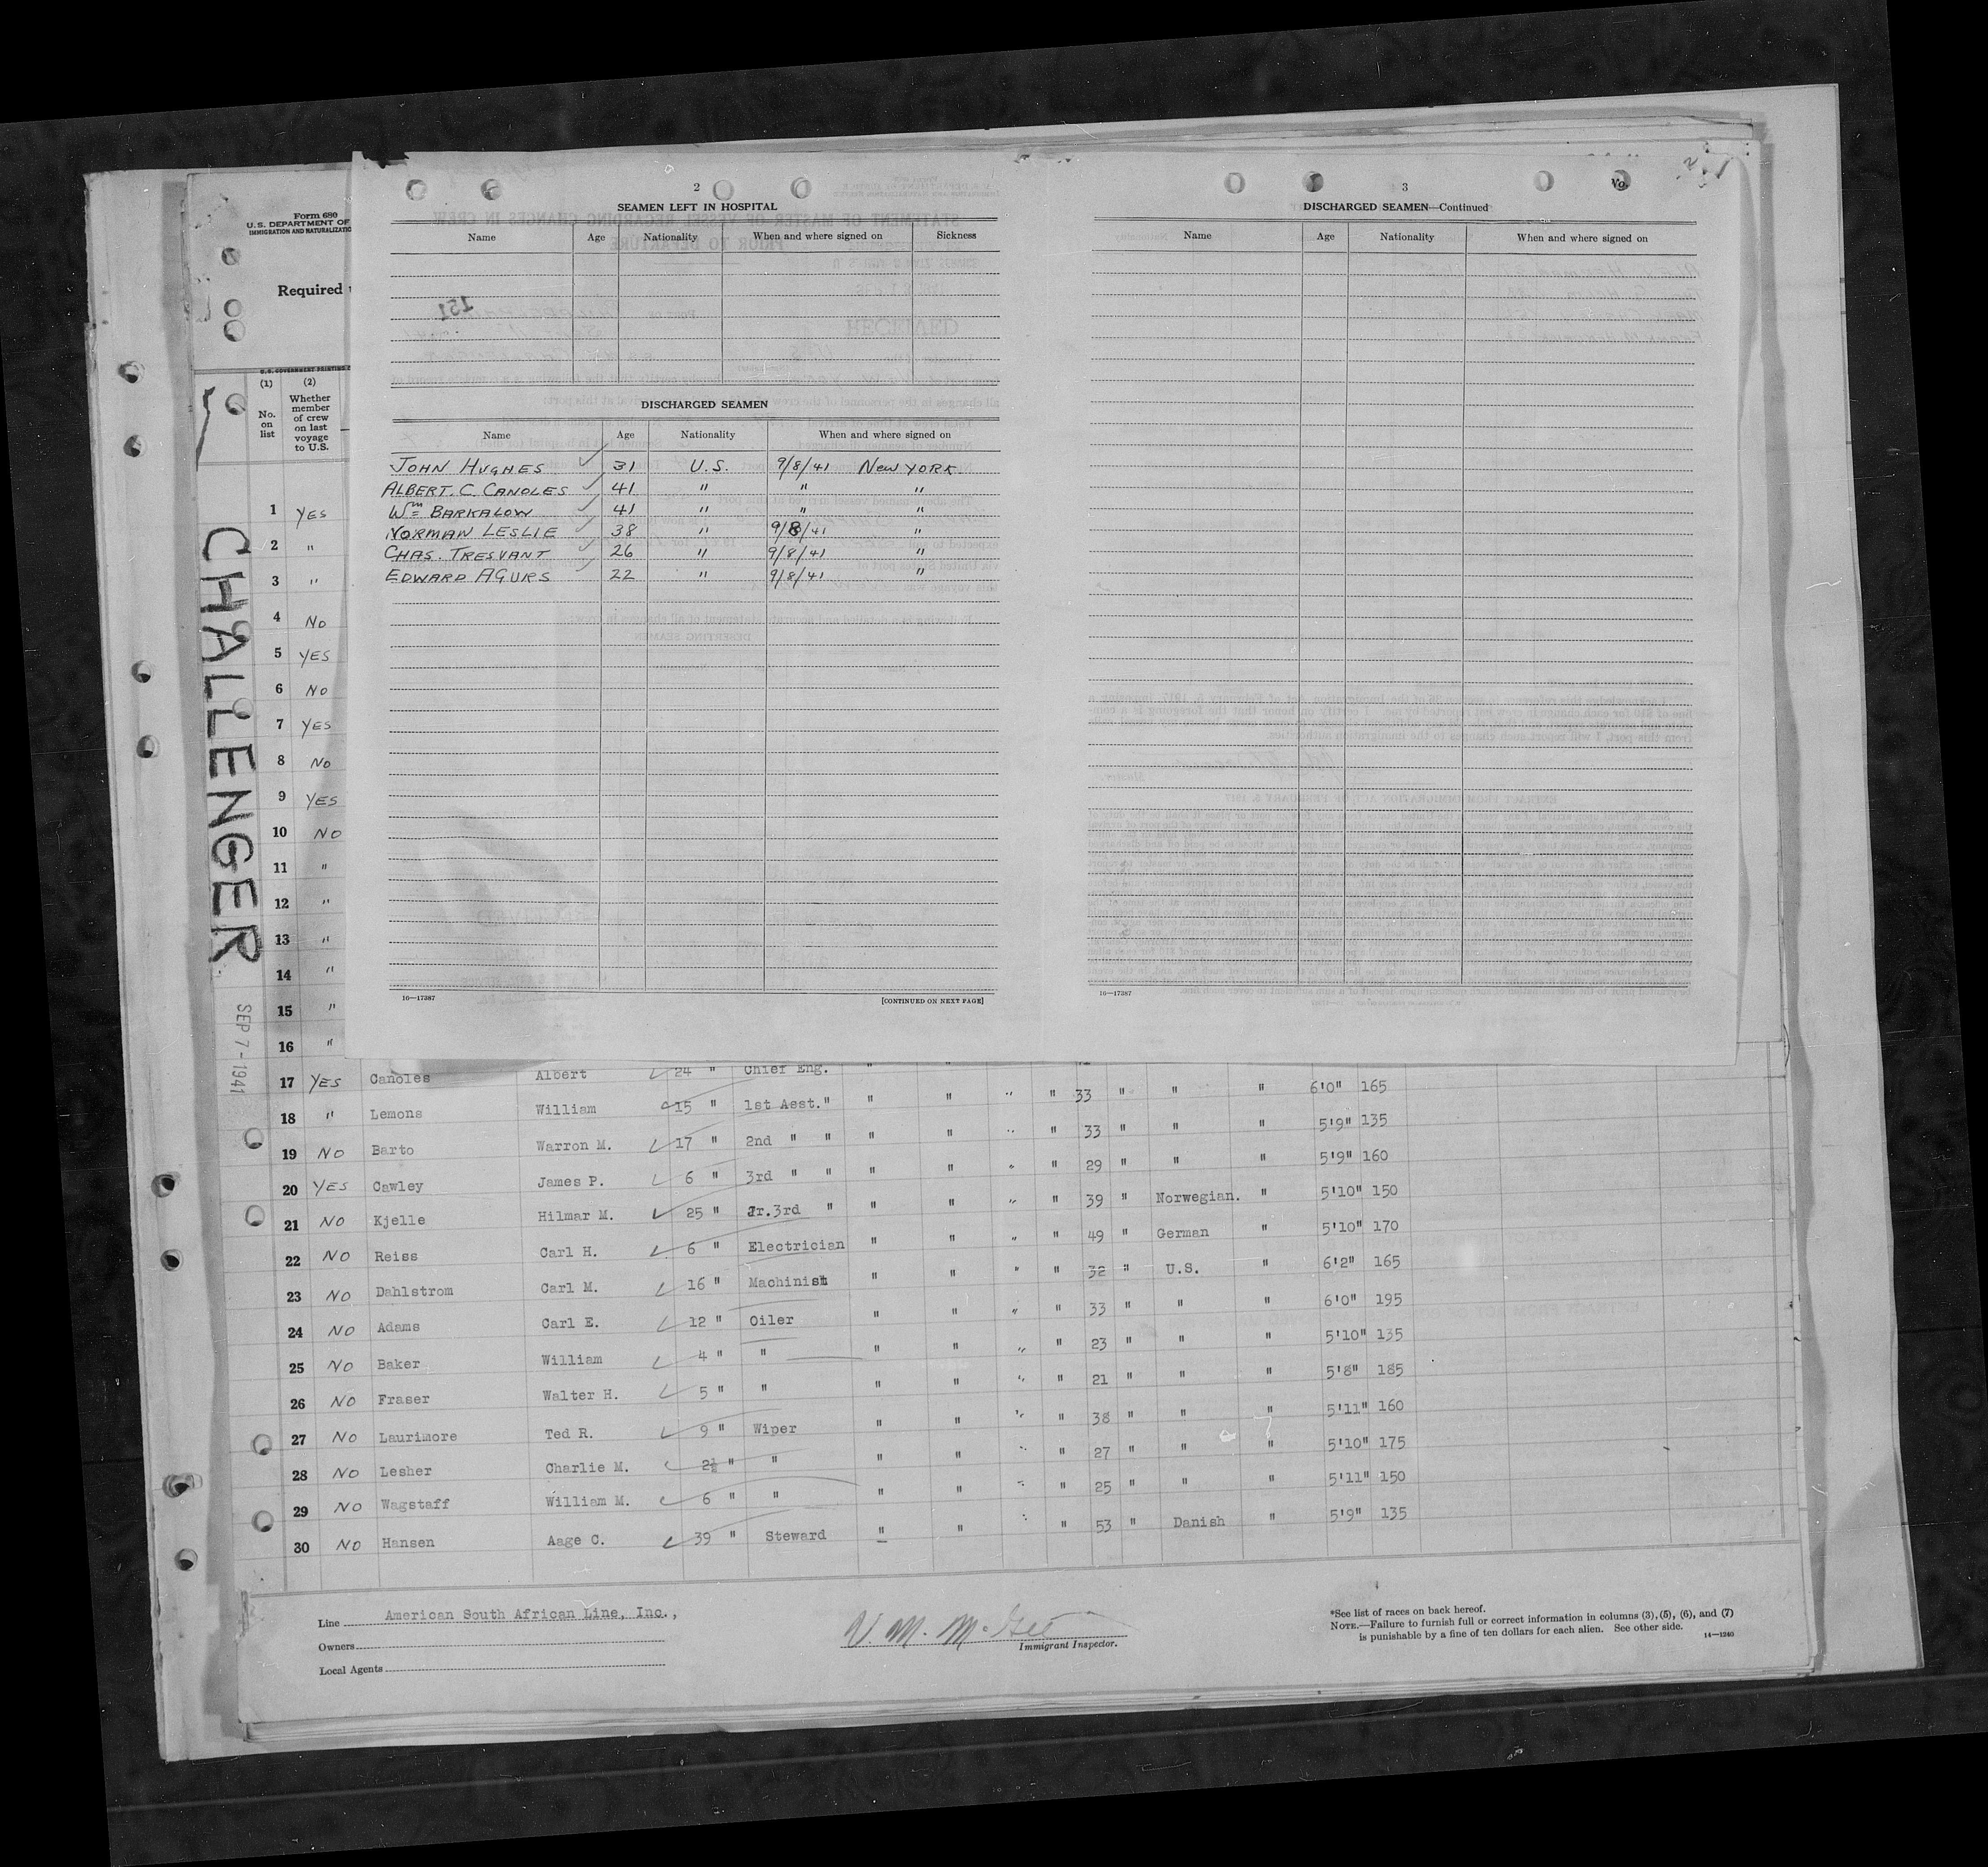 Form 680
U.S. DEPARTMENT OF
IMMIGRATION AND NATURALIZATIO
Required
(1) (2)
No. on list
Whether member of crew on last voyage to U.S.
CHALLENGER
SEP 7 - 1941
1 YES
2 "
3 "
4 NO
5 YES
6 NO
7 YES
8 NO
9 YES
10 NO
11 "
12 "
13 "
14 "
15 "
16 "
2
SEAMEN LEFT IN HOSPITAL
Name Age Nationality When and where signed on Sickness
151
DISCHARGED SEAMEN
Name Age Nationality When and where signed on
JOHN HUGHES 31 U.S. 9/8/41 New YORK
ALBERT. C. CANOLES 41 " " "
Wm BARKALOW 41 " " "
NORMAN LESLIE 38 " 9/8/41 "
CHAS. TRESVANT 26 " 9/8/41 "
EDWARD AGURS 22 " 9/8/41 "
16—17387 [CONTINUED ON NEXT PAGE]
3
Vo.
DISCHARGED SEAMEN—Continued
Name Age Nationality When and where signed on
16—17387
17 YES Canoles Albert 24 " Chief Eng. " "
18 " Lemons William 15 " 1st Asst." " " " " 33 " " " 6'0" 165
19 NO Barto Warron M. 17 " 2nd " " " " " " 33 " " " 5'9" 135
20 YES Cawley James P. 6 " 3rd " " " " " " 29 " " " 5'9" 160
21 NO Kjelle Hilmar M. 25 " Jr.3rd " " " " " 39 " Norwegian. " 5'10" 150
22 NO Reiss Carl H. 6 " Electrician " " " " 49 " German " 5'10" 170
23 NO Dahlstrom Carl M. 16 " Machinist " " " " 32 " U.S. " 6'2" 165
24 NO Adams Carl E. 12 " Oiler " " " " 33 " " " 6'0" 195
25 NO Baker William 4 " " " " " " 23 " " " 5'10" 135
26 NO Fraser Walter H. 5 " " " " " " 21 " " " 5'8" 185
27 NO Laurimore Ted R. 9 " Wiper " " " " 38 " " " 5'11" 160
28 NO Lesher Charlie M. 2½ " " " " " " 27 " " " 5'10" 175
29 NO Wagstaff William M. 6 " " " " " " 25 " " " 5'11" 150
30 NO Hansen Aage C. 39 " Steward " " " " 53 " Danish " 5'9" 135
Line American South African Line, Inc.,
Owners
Local Agents
V. M. McGee
Immigrant Inspector.
*See list of races on back hereof.
NOTE.—Failure to furnish full or correct information in columns (3), (5), (6), and (7)
is punishable by a fine of ten dollars for each alien. See other side.
14—1240